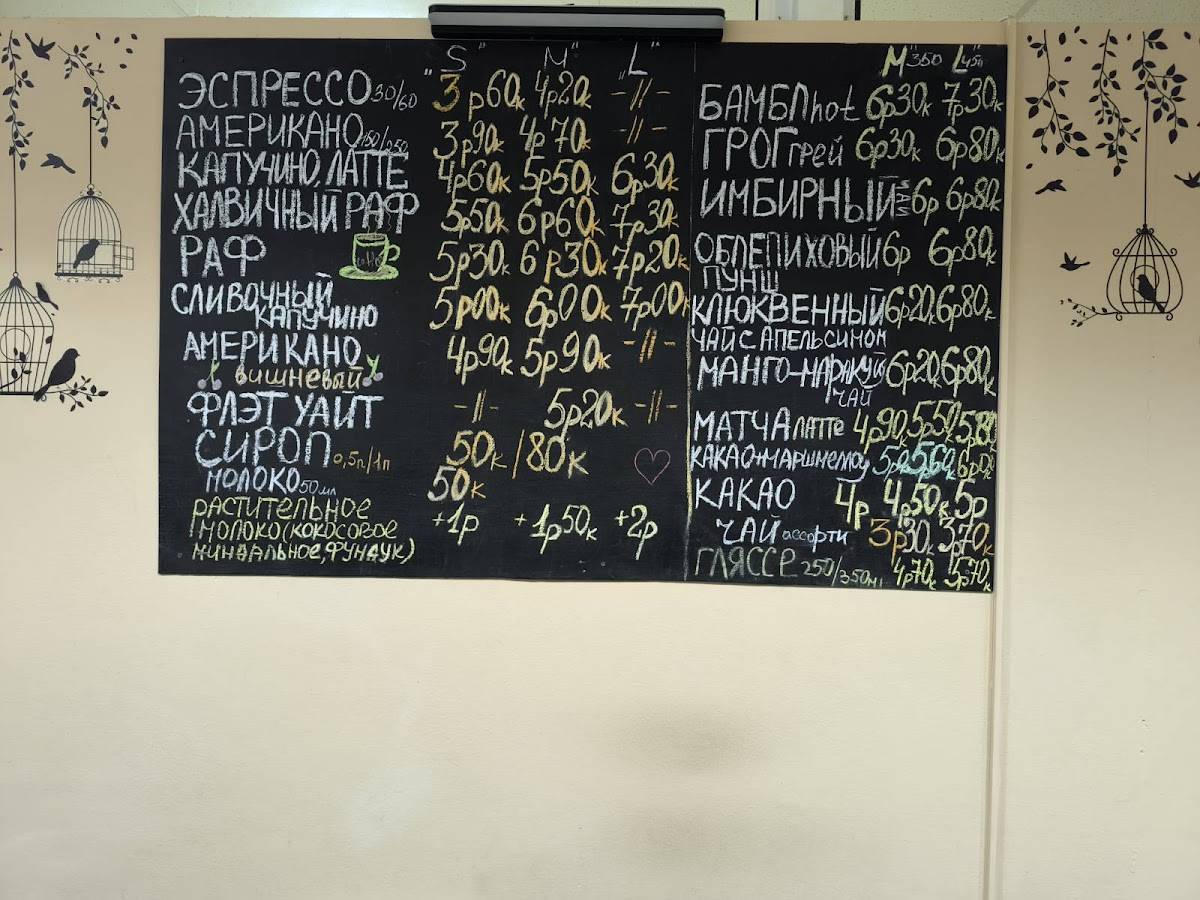 S" M" L"
ЭСПРЕССО 30/60 3р60к 4р20к -//-
АМЕРИКАНО 150/250 3р90к 4р70к -//-
КАПУЧИНО, ЛАТТЕ 4р60к 5р50к 6р30к
ХАЛВИЧНЫЙ РАФ 5р50к 6р60к 7р30к
РАФ 5р30к 6р30к 7р20к
СЛИВОЧНЫЙ
КАПУЧИНО 5р00к 6р00к 7р00к
АМЕРИКАНО 4р90к 5р90к -//-
ВИШНЕВЫЙ
ФЛЭТ УАЙТ -//- 5р20к -//-
СИРОП 0,5п/1п 50к/80к
МОЛОКО 50мл 50к
РАСТИТЕЛЬНОЕ
МОЛОКО (КОКОСОВОЕ +1р +1р50к +2р
МИНДАЛЬНОЕ, ФУНДУК)
М"350 L"45
БАМБЛ hot 6р30к 7р30к
ГРОГ грей 6р30к 6р80к
ИМБИРНЫЙ ЧАЙ 6р 6р80к
ОБЛЕПИХОВЫЙ 6р 6р80к
ПУНШ
КЛЮКВЕННЫЙ 6р20к 6р80к
ЧАЙ С АПЕЛЬСИНОМ
МАНГО-МАРАКУЙЯ 6р20к 6р80к
ЧАЙ
МАТЧА ЛАТТЕ 4р90к 5р50к 5р80
КАКАО+МАРШМЕЛОУ 5р 5р60к 6р
КАКАО 4р 4,50к 5р
ЧАЙ ассорти 3р30к 3р70к
ГЛЯССЕ 250/350мл 4р70к 5р70к